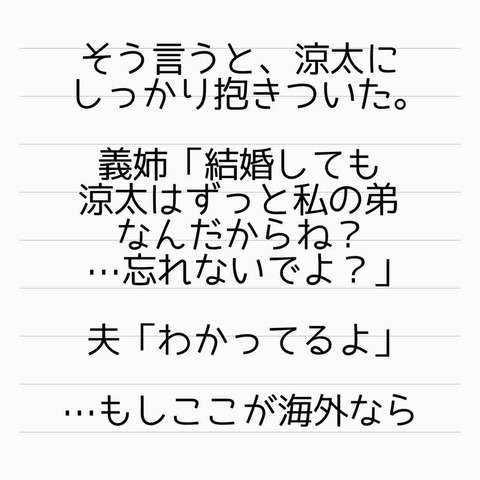 そう言うと、涼太に
しっかり抱きついた。
義姉「結婚しても
涼太はずっと私の弟
なんだからね？
…忘れないでよ？」
夫「わかってるよ」
…もしここが海外なら